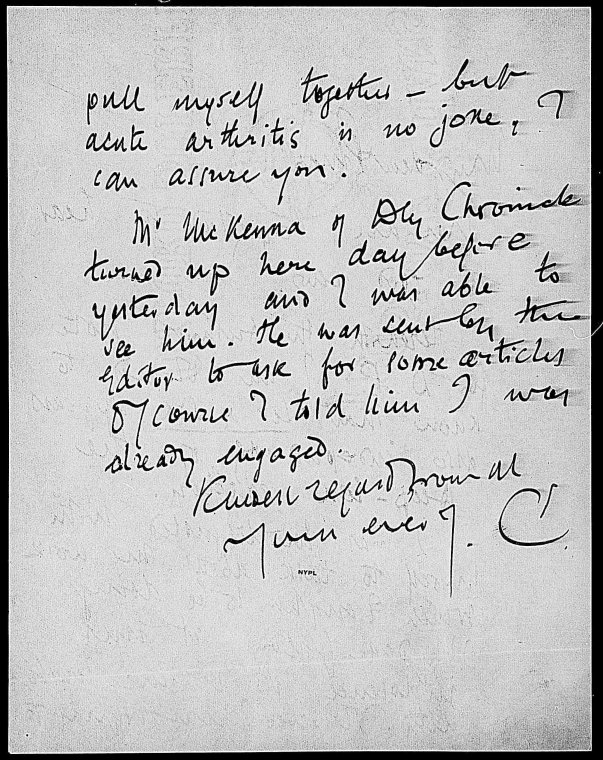 pull myself together – but
acute arthritis is no joke, I
can assure you.
Mr McKenna of Dly Chronicle
turned up here day before
yesterday and I was able to
see him. He was sent by the
Editor to ask for some articles
Of course I told him I was
already engaged.
Kindest regard from all
Yours ever J. C.
NYPL